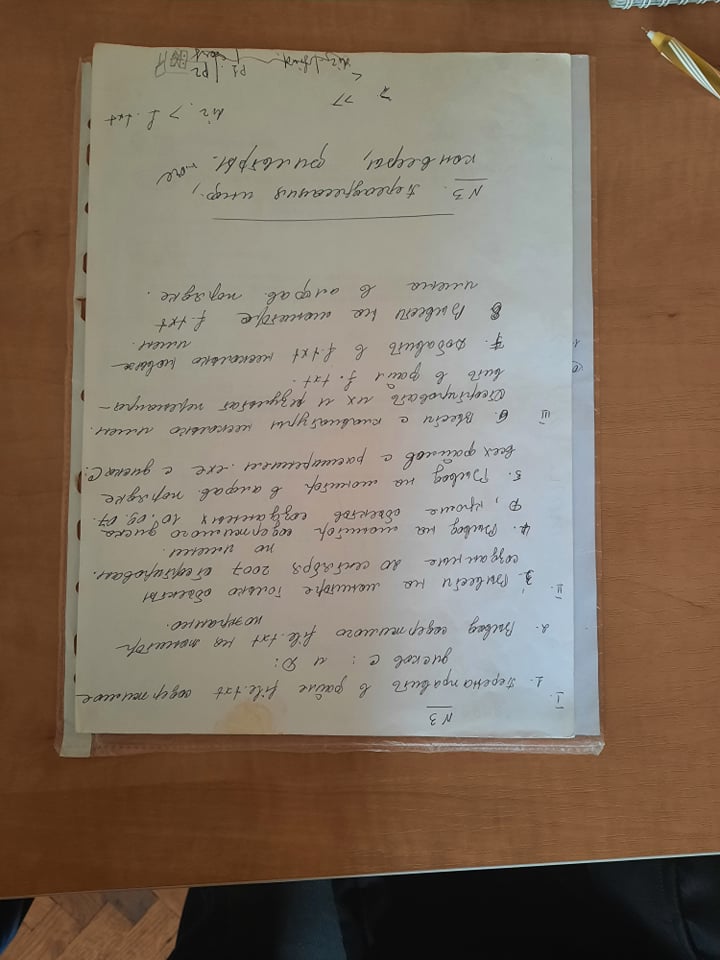 N 3
I.
1. Перенаправить в файле file.txt содержимое
дисков C: и D:
2. Вывод содержимого file.txt на монитор
поэкранно.
II.
3. Вывести на мониторе только объекты
созданные 20 сентября 2007 отсортирован.
по имени.
4. Вывод на монитор содержимого диска
D, кроме объектов созданных 10.09.07.
5. Вывод на монитор в алфав. порядке
всех файлов с расширением .exe с диска C:
III
6. Ввести с клавиатуры несколько имен.
Отсортировать их и результат перенапра-
вить в файл f.txt.
7. Добавить в f.txt несколько новых
имен.
8 Вывести на мониторе f.txt
имена в алфав. порядке.
N 3. Переадресация инф.,
конвееры, фильтры. more
dir > f.txt
> >>
<
P1 | P2